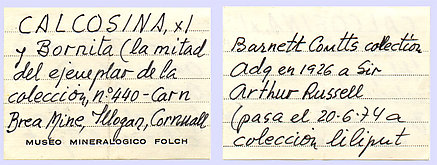 CALCOSINA, xl
y Bornita (la mitad
del ejemplar de la
colección, nº 440 - Carn
Brea Mine, Illogan, Cornwall
MUSEO MINERALOGICO FOLCH
Barnett Coutts colection
Adq en 1926 a Sir
Arthur Russell
(pasa el 20-6-74 a
colección liliput